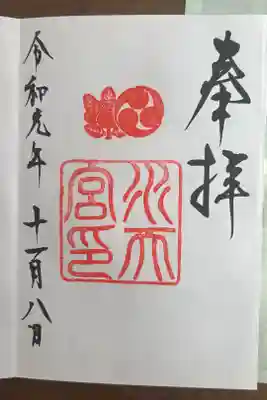 奉拝
水天
宮印
令和元年十一月八日